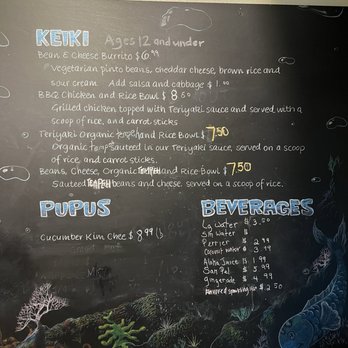 KEIKI Ages 12 and under
Bean & Cheese Burrito $6.99
Vegetarian pinto beans, cheddar cheese, brown rice and
sour cream Add salsa and cabbage $1.00
BBQ Chicken and Rice Bowl $8.50
Grilled chicken topped with Teriyaki sauce and served with a
scoop of rice, and carrot sticks
Teriyaki Organic Tempeh and Rice Bowl $7.50
Organic sauteed in our Teriyaki sauce, served on a scoop
of rice, and carrot sticks.
Beans, Cheese, Organic TEMPEH and Rice Bowl $7.50
Sauteed TEMPEH beans and cheese served on a scoop of rice.
PUPUS
Cucumber Kim Chee $8.99
BEVERAGES
Lg Water $3.50
Sm Water $
Perrier $2.99
Coconut water $3.99
Aloha Juice $1.99
San Pel $5.99
gingerade $4.99
$2.50